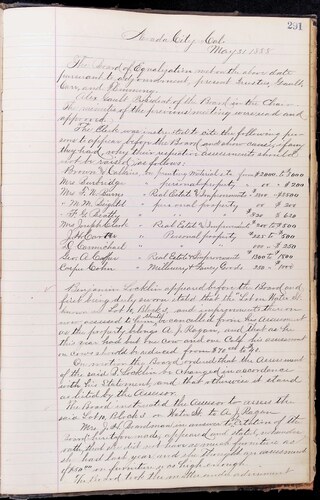 291
Nevada City, Cal.
May 21 1888
The Board of Equalization met on the above date
pursuant to adjournment, present Trustees, Gault,
Carr, and Fleming.
Alex Gault President of the Board in the Chair
The minutes of the previous meeting were read and
approved.
The Clerk was instructed to cite the following per-
sons to appear before the Board and show cause, if any
they had, why their respective assessments should
not be raised, as follows:
Brown & Calkins, on printing material &c from $2000 to $3000
Mrs " personal property " " $200
Mrs Real Estate & Improvements to $2500
Mrs M. M. " personal property to $300
F. G. Beatty " " " $320 to $620
Mrs Joseph Clark Real Estate & Improvements to $500
J. H. " Personal property $225 to $500
Carmichael " " " to $250
Geo. A. Real Estate & Improvements 1300 to 1800
Caspar Cohn " Millinery & Fancy Goods 250 " 1000
Benjamin Locklin appeared before the Board and,
first being duly sworn stated that the Lot on Water St.
known as Lot 10, Block 3, and improvements thereon
were assessed to himself cancelled from the Assessment
as the property belongs A. J. Ragan, and that as he
this year has but one cow and one calf his assessment
on cows should be reduced from
On motion the Board ordered that the Assessment
of the said B. Locklin be changed in accordance
with his Statement, and that otherwise it stand
as listed by the Assessor.
The Board instructed the Assessor to assess the
said Lot 10, Block 3 on Water St to A. J. Ragan.
Mrs. J. H. Boardman in answer to Citation of the
Board heretofore made, appeared and stated, under
oath, that she did not have as much furniture as
she had last year and she thought an assessment
of on furniture was high enough.
The Board took the matter under advisement